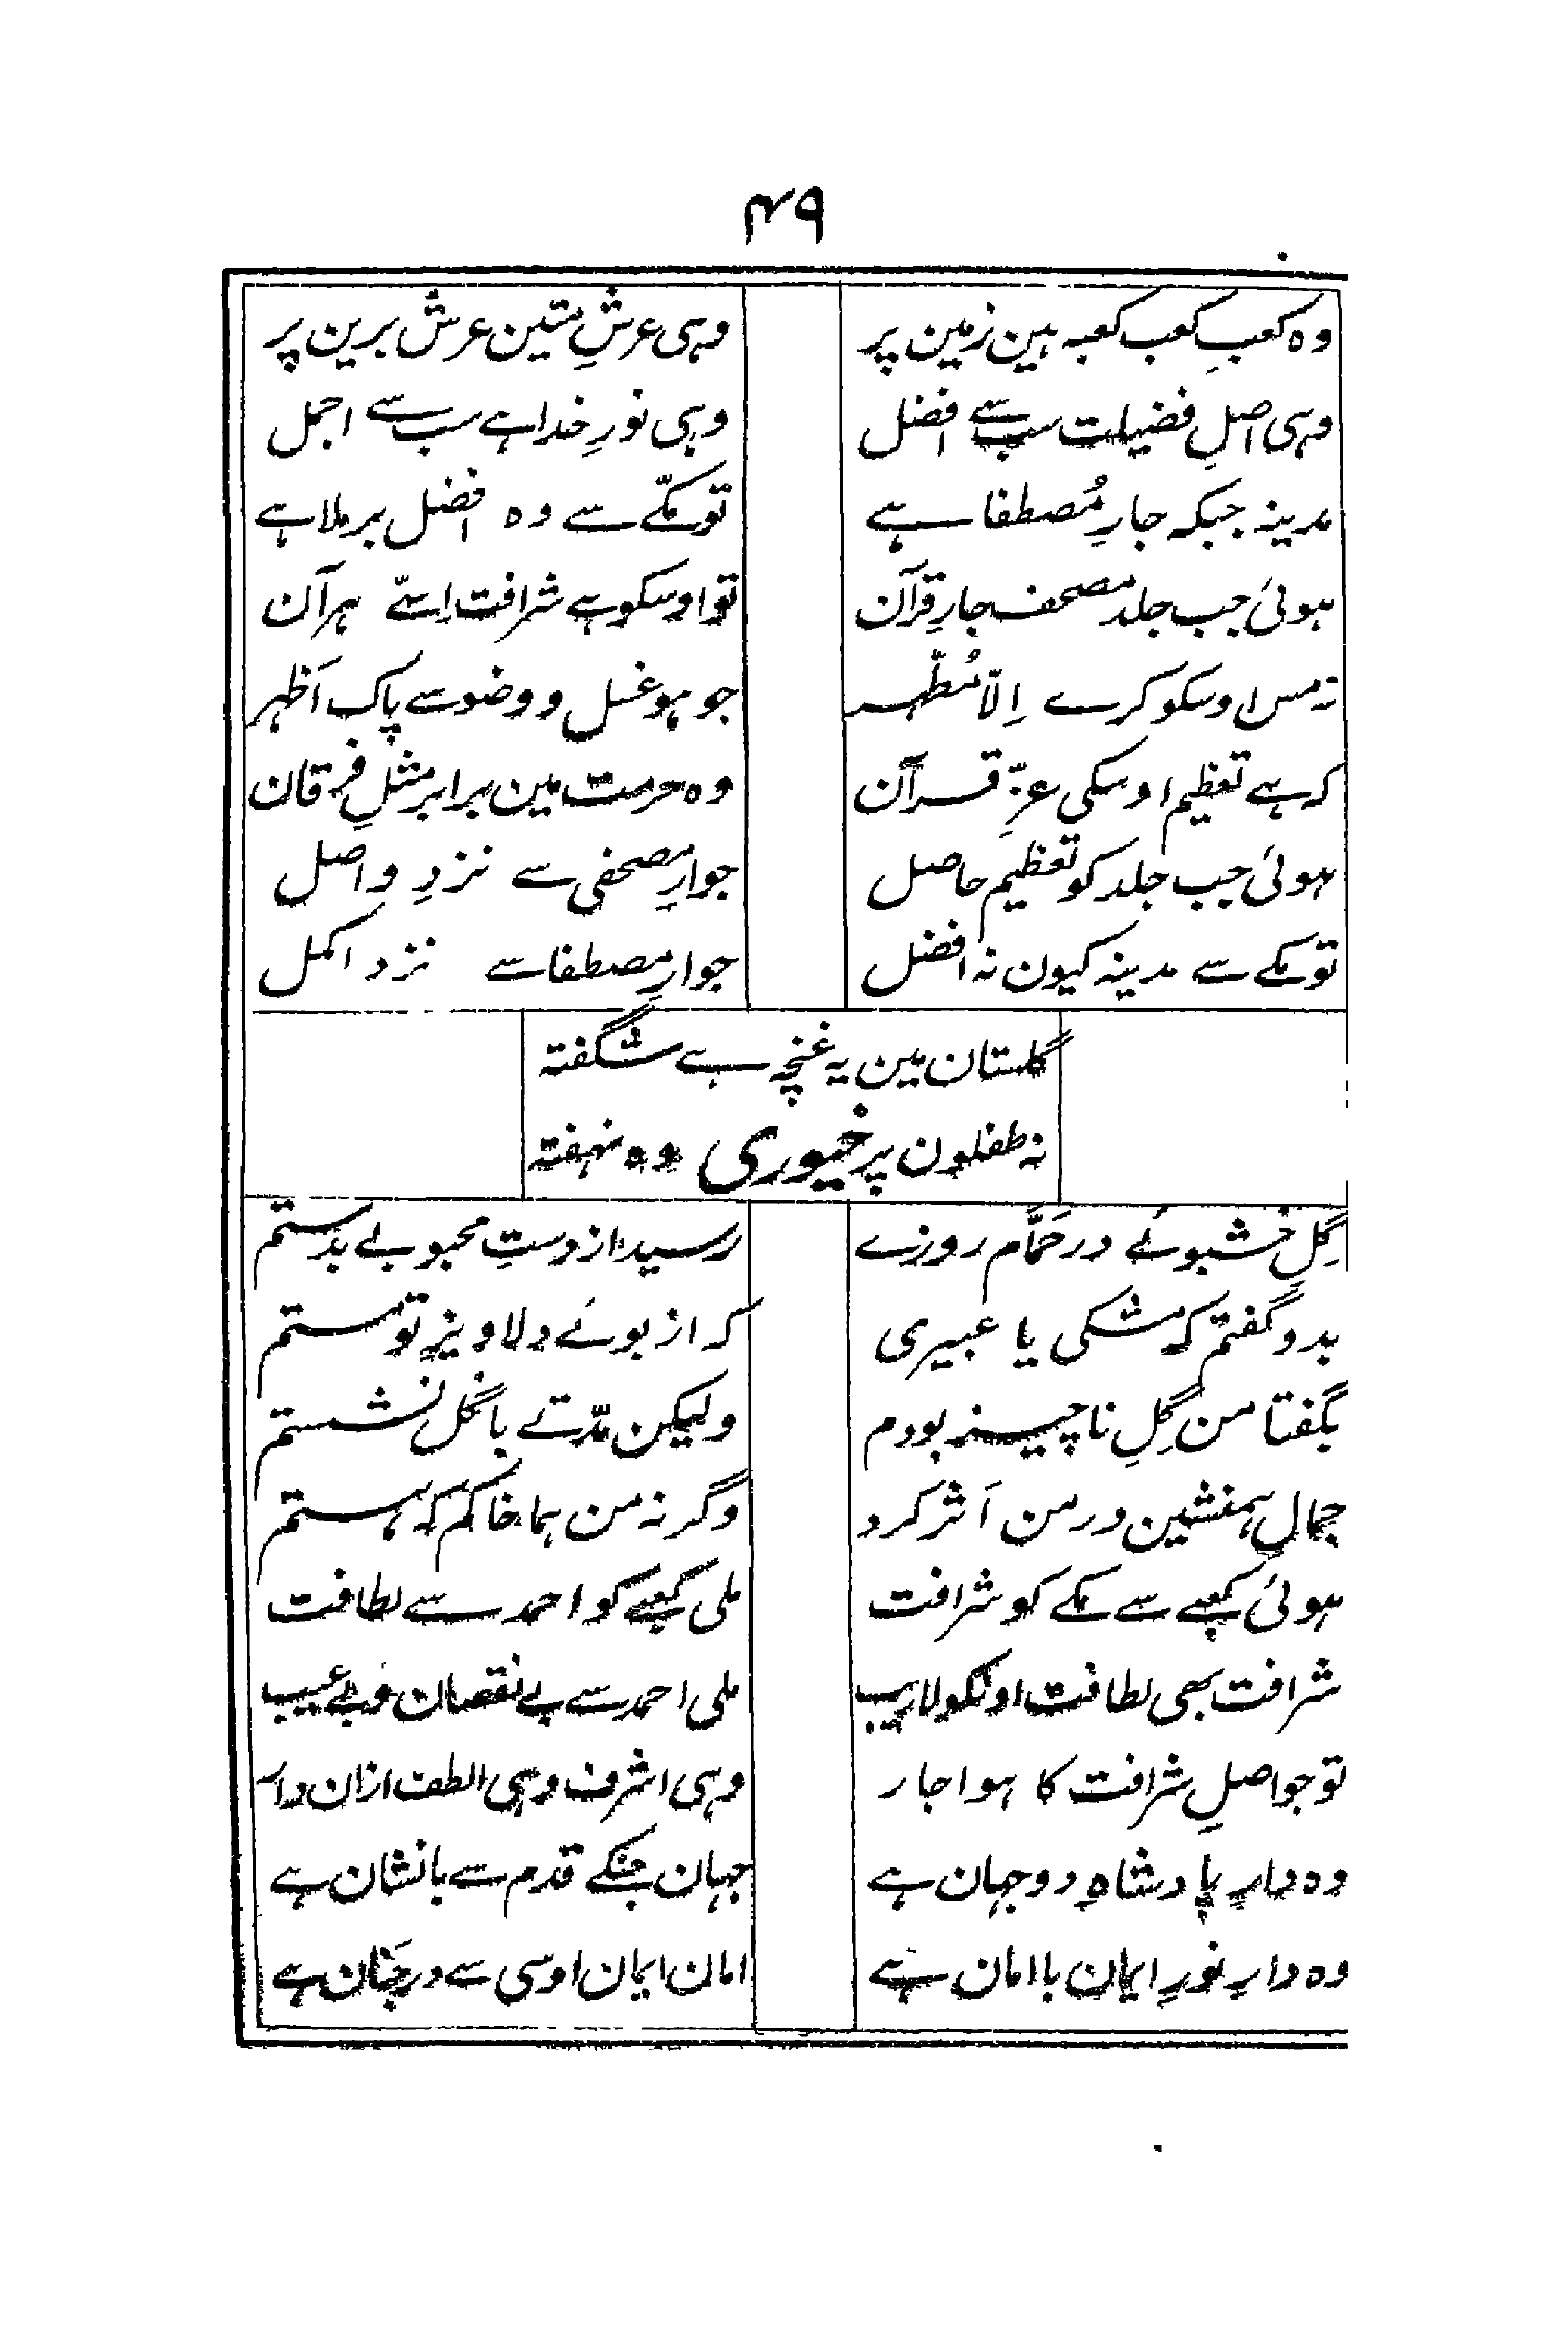 ۴۹
وہ کعبِ کعب کعبہ ہین زمین پر
وہی عرشِ متین عرش برین پر
وہی اصلِ فضیلت سب سے افضل
وہی نورِ خدا ہے سب سے اجمل
مدینہ جبکہ جارِ مُصطفا ہے
تو مکّے سے وہ افضل برملا ہے
ہوئی جب جلد مصحف جارِ قرآن
تو اوسکو ہے شرافت اِسّے ہر آن
نہ مس اوسکو کرے اِلّا مُطّہر
جو ہو غسل و وضو سے پاک اَظہر
کہ ہے تعظیم اوسکی عزِّ قرآن
وہ حرمت مین برابر مثلِ فرقان
ہوئی جب جلد کو تعظیم حاصل
جوارِ مصحفی سے نزدِ واصل
تو مکے سے مدینہ کیون نہ افضل
جوارِ مصطفا سے نزد اکمل
گلستان مین یہ غنچہ ہے شگفتہ
نہ طفلون پر خیوری وہ نہفتہ
گِلِ خشبوئے در حَمَّام روزے
رسید از دستِ محبوبے بدستم
بدو گفتم کہ مشکی یا عبیری
کہ از بوئے دلاویزِ تو مستم
بگفتا من گِلِ ناچیز بودم
ولیکن مدّتے با گل نشستم
جمالِ ہمنشین در من اَثر کرد
وگرنہ من ہما خاکم کہ ہستم
ہوئی کعبے سے مکے کو شرافت
ملی کعبے کو احمد سے لطافت
شرافت بھی لطافت اونکو لاریب
ملی احمد سے بے نقصان و بے عیب
تو جو اصلِ شرافت کا ہوا جار
وہی اشرف وہی الطف ازان دار
وہ دارِ پادشاہِ دوجہان ہے
جہان جنکے قدم سے با نشان ہے
وہ دارِ نورِ ایمان با امان ہے
امان ایمان اوسی سے در جَنان ہے